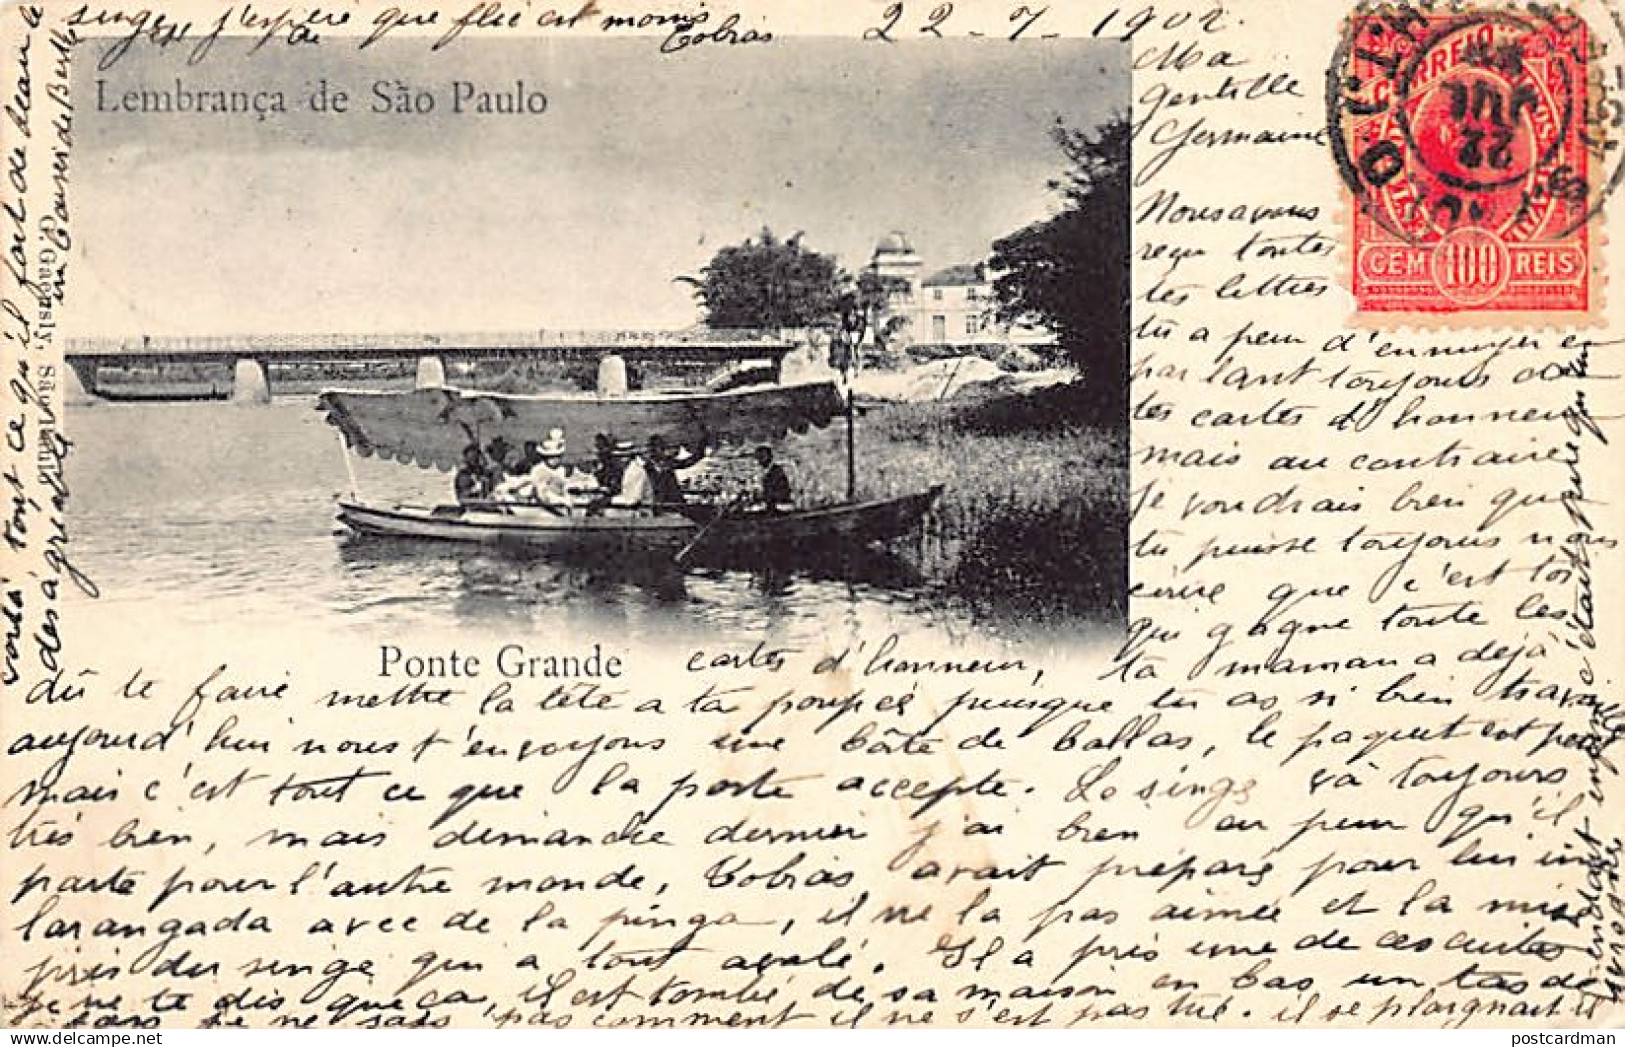 22 - 7 - 1902.
Ma
gentille
Germaine
Nous avons
reçu toutes
tes lettres
tu a peur d'ennuyer en
parlant toujours de
tes cartes d'honneur
mais au contraire
je voudrais bien que
tu puisse toujours nous
écrire que c'est toi
qui gagne toute les
cartes d'honneur, ta maman a déjà
dû te faire mettre la tête a ta poupée puisque tu as si bien
aujourd'hui nous t'envoyons une boîte de ballas, le paquet est
mais c'est tout ce que la poste accepte. Le singe va toujours
très bien, mais dimanche dernier j'ai bien eu peur qu'il
parte pour l'autre monde, Tobias avait préparé pour lui une
larangada avec de la pinga, il ne la pas aimée et la mise
près du singe qui a tout avalé. Il a pris une de ces cuites
je ne te dis que ça, il est tombé de sa maison en bas un tas de
fois je ne sais pas comment il ne s'est pas tué. il se plaignait et
c'était
voilà tout ce qu'il fait de beau le
singe, j'espère que flic est moins
désagréable
Tobias
Lembrança de São Paulo
Ponte Grande
G. Gaensly, São Paulo
CORREIO
CEM 100 REIS
22
JUL
postcardman